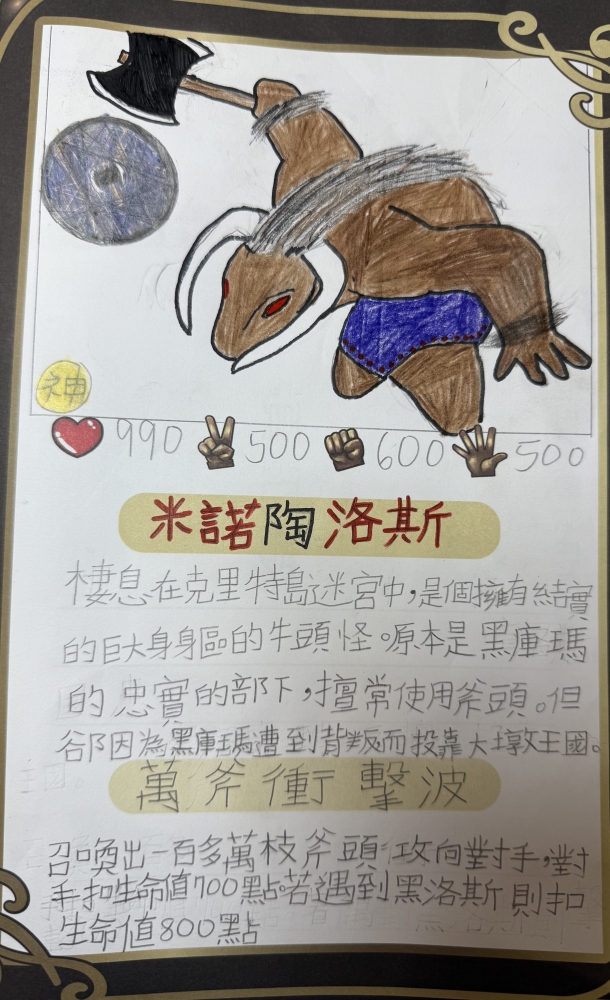 神
990 500 600 500
米諾陶洛斯
棲息在克里特島迷宮中,是個擁有結實
的巨大身身區的牛頭怪。原本是黑庫瑪
的忠實的部下,擅常使用斧頭。但
卻因為黑庫瑪遭到背叛而投靠大墩王國。
萬斧衝擊波
召喚出一百多萬枝斧頭攻向對手,對
手扣生命值700點。若遇到黑洛斯則扣
生命值800點